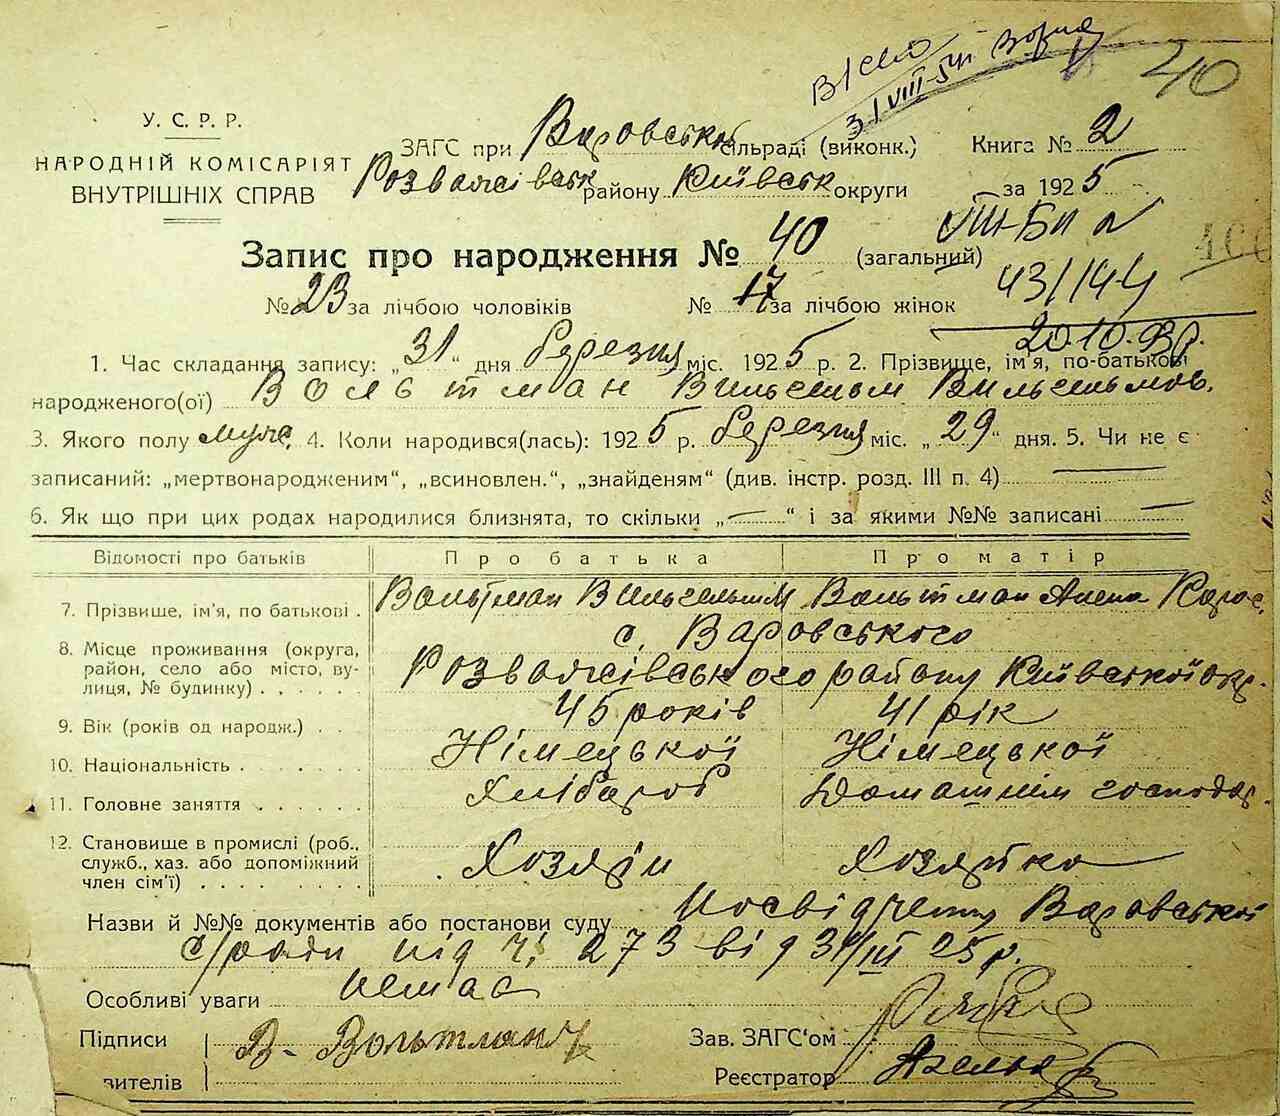 40
31 VIII-54
У. С. Р. Р.
НАРОДНІЙ КОМІСАРІЯТ
ВНУТРІШНІХ СПРАВ
ЗАГС при Варовській сільраді (виконк.) Книга № 2
Розважівськ району Київськ округи за 1925
VIII-БП
Запис про народження № 40 (загальний)
43/144
№ 23 за лічбою чоловіків № 17 за лічбою жінок
20.10.93р.
1. Час складання запису: „31“ дня березня міс. 1925 р. 2. Прізвище, ім'я, по-батькові
народженого(ої) Вольтман Вильгельм Вильгельмов.
3. Якого полу муж. 4. Коли народився(лась): 1925 р. березня міс. „29“ дня. 5. Чи не є
записаний: „мертвонародженим“, „всиновлен.“, „знайденям“ (див. інстр. розд. III п. 4) —
6. Як що при цих родах народилися близнята, то скільки „—“ і за якими №№ записані —
Відомості про батьків Про батька Про матір
7. Прізвище, ім'я, по батькові . Вольтман Вильгельм Вольтман
8. Місце проживання (округа, с. Варовського
район, село або місто, ву- Розважівського району Київської окр.
лиця, № будинку) . . . . . .
9. Вік (років од народж.) . . . 45 років 41 рік
10. Національність . . . . . Німецької Німецької
11. Головне заняття . . . . . . Хлібароб Домашнім господар.
12. Становище в промислі (роб., Хозяїн Хозяйка
служб., хаз. або допоміжний
член сім'ї) . . . . . . . .
Назви й №№ документів або постанови суду Посвідченя Варовської
с/ради під ч. 273 від 31/III 25 р.
Особливі уваги немає
Підписи В. Вольтман Зав. ЗАГС'ом
вителів Реєстратор